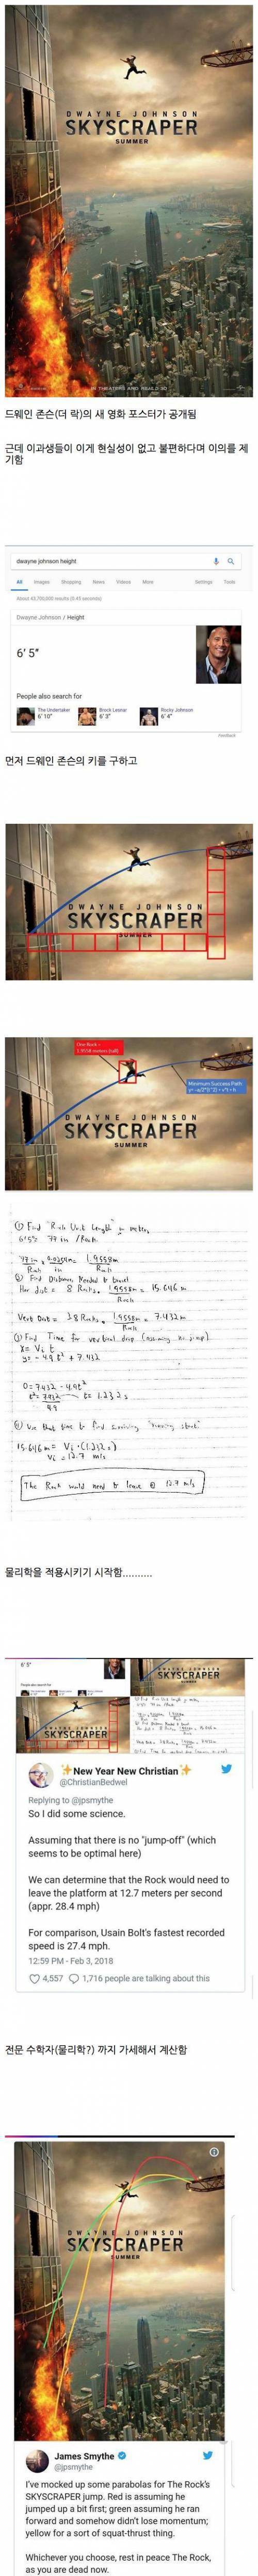 DWAYNE JOHNSON
SKYSCRAPER
SUMMER
IN THEATERS AND REALD 3D
드웨인 존슨(더 락)의 새 영화 포스터가 공개됨
근데 이과생들이 이게 현실성이 없고 불편하다며 이의를 제
기함
dwayne johnson height
All Images Shopping News Videos More Settings Tools
Dwayne Johnson / Height
6' 5"
People also search for
The Undertaker
6' 10"
Brock Lesnar
6' 3"
Rocky Johnson
6' 4"
Feedback
먼저 드웨인 존슨의 키를 구하고
DWAYNE JOHNSON
SKYSCRAPER
SUMMER
One Rock =
1.9558 meters (tall)
Minimum Success Path
DWAYNE JOHNSON
SKYSCRAPER
SUMMER
① Find "Rock Unit Length" in meters
6'5" = 77 in /Rock
② Find Distances Needed to travel
Hor dist = 8 Rocks · 1.9558m / Rock = 15.646 m
Vert Dist = 3.8 Rocks · 1.9558m / Rock = 7.432m
③ Find Time for vertical drop (assuming no jump)
x = Vi t
y = -4.9t² + 7.432
0 = 7.432 - 4.9t²
t² = 7.432 / 4.9 t = 1.232 s
④ Use that time to find surviving "running start"
15.646m = Vi · (1.232 s)
Vi = 12.7 m/s
The Rock would need to leave @ 12.7 m/s
물리학을 적용시키기 시작함..........
6' 5"
SKYSCRAPER
SKYSCRAPER
✨New Year New Christian✨
@ChristianBedwel
Replying to @jpsmythe
So I did some science.
Assuming that there is no "jump-off" (which
seems to be optimal here)
We can determine that the Rock would need to
leave the platform at 12.7 meters per second
(appr. 28.4 mph)
For comparison, Usain Bolt's fastest recorded
speed is 27.4 mph.
12:59 PM - Feb 3, 2018
4,557 1,716 people are talking about this
전문 수학자(물리학?) 까지 가세해서 계산함
DWAYNE JOHNSON
SKYSCRAPER
SUMMER
James Smythe
@jpsmythe
I've mocked up some parabolas for The Rock's
SKYSCRAPER jump. Red is assuming he
jumped up a bit first; green assuming he ran
forward and somehow didn't lose momentum;
yellow for a sort of squat-thrust thing.
Whichever you choose, rest in peace The Rock,
as you are dead now.